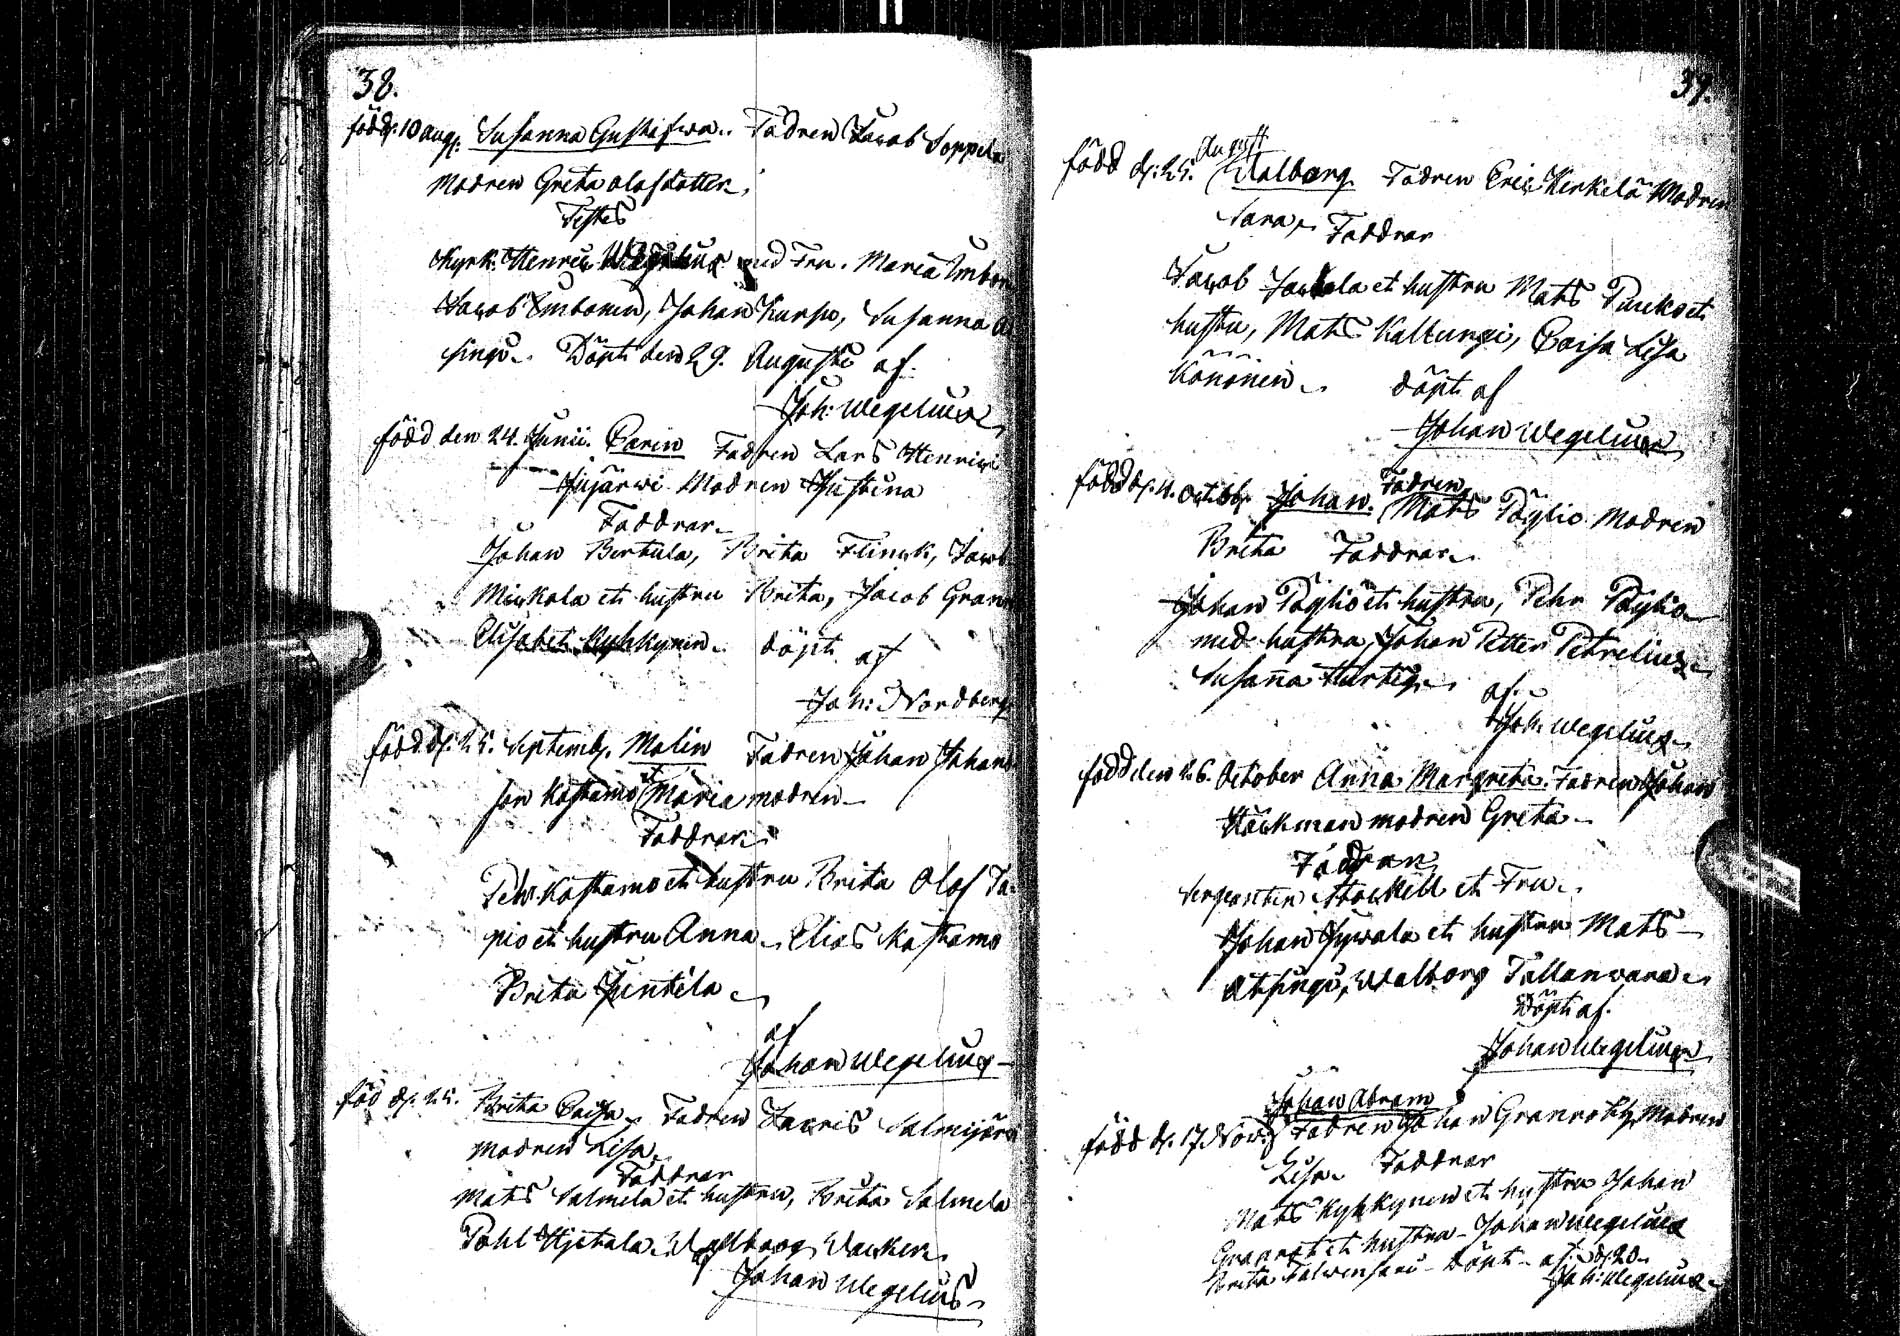 38.
född d. 10 aug. Susanna Gustafwa. Fadren Jacob Soppela
modren Greta olofsdotter,
Testes
Kyrk. Henric Wegelius med Fru. Maria Imbon
Jacob Imbonen, Johan Kurpo, Susanna
singi. Döpt den 29. Augusti af.
Joh: Wegelius
född den 24. Junii. Carin Fadren Lars Henrici
Jujärwi Modren Justina
Faddrar
Johan Bertula, Brita Flinck, Jacob
Mickola et hustru Brita, Jacob Grann
Elisabet Kyhkynen. döpt af
Joh: Nordberg
född d. 25. Septemb. Malin Fadren Johan Johans
son Kostamo et Maria modren
Faddrar
Pehr Kostamo et hustru Brita Olof Ta
pio et hustru Anna. Elias Kostamo
Brita Junttila
af
Johan Wegelius
föd d. 25. Brita Caisa. Fadren Lauris Salmijärwi
modren Lisa.
Faddrar
Mats Salmela et hustru, Brita Salmela
Pohl Hjetala. Walborg Wackeri
af
Johan Wegelius
39.
August
född d: 25. Walborg Fadren Eric Kerkelä Modren
Sara, Faddrar
Jacob et hustru Mats et
hustru, Mats Kallungi, Caisa Lisa
Könönen. döpt af
Johan Wegelius
Fadren
född d. 4. Octob. Johan. Mats Pöyliö Modren
Brita Faddrar
Johan Pöyliö et hustru, Pehr Pöyliö
med hustru, Johan Petter Petrelius
Susanna Hurtig
af.
Joh. Wegelius
född den 26. October Anna Margreta. Fadren Johan
Stäckman modren Greta.
Faddrar
Sergeanten Stockell et Fru.
Johan Jywala et hustru Mats
Atsingi, Walborg Tallawaara
Döpt af.
Johan Wegelius
Johan Abram
född d. 17. Nov. Fadren Johan Granroth Modren
Lisa. Faddrar
Mats Kyhkynen et hustru Johan
Granrot et hustru. Johan Wegelius
Brita Döpt af. d. 20.
Joh: Wegelius